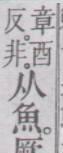 章酉
反。非
从魚。